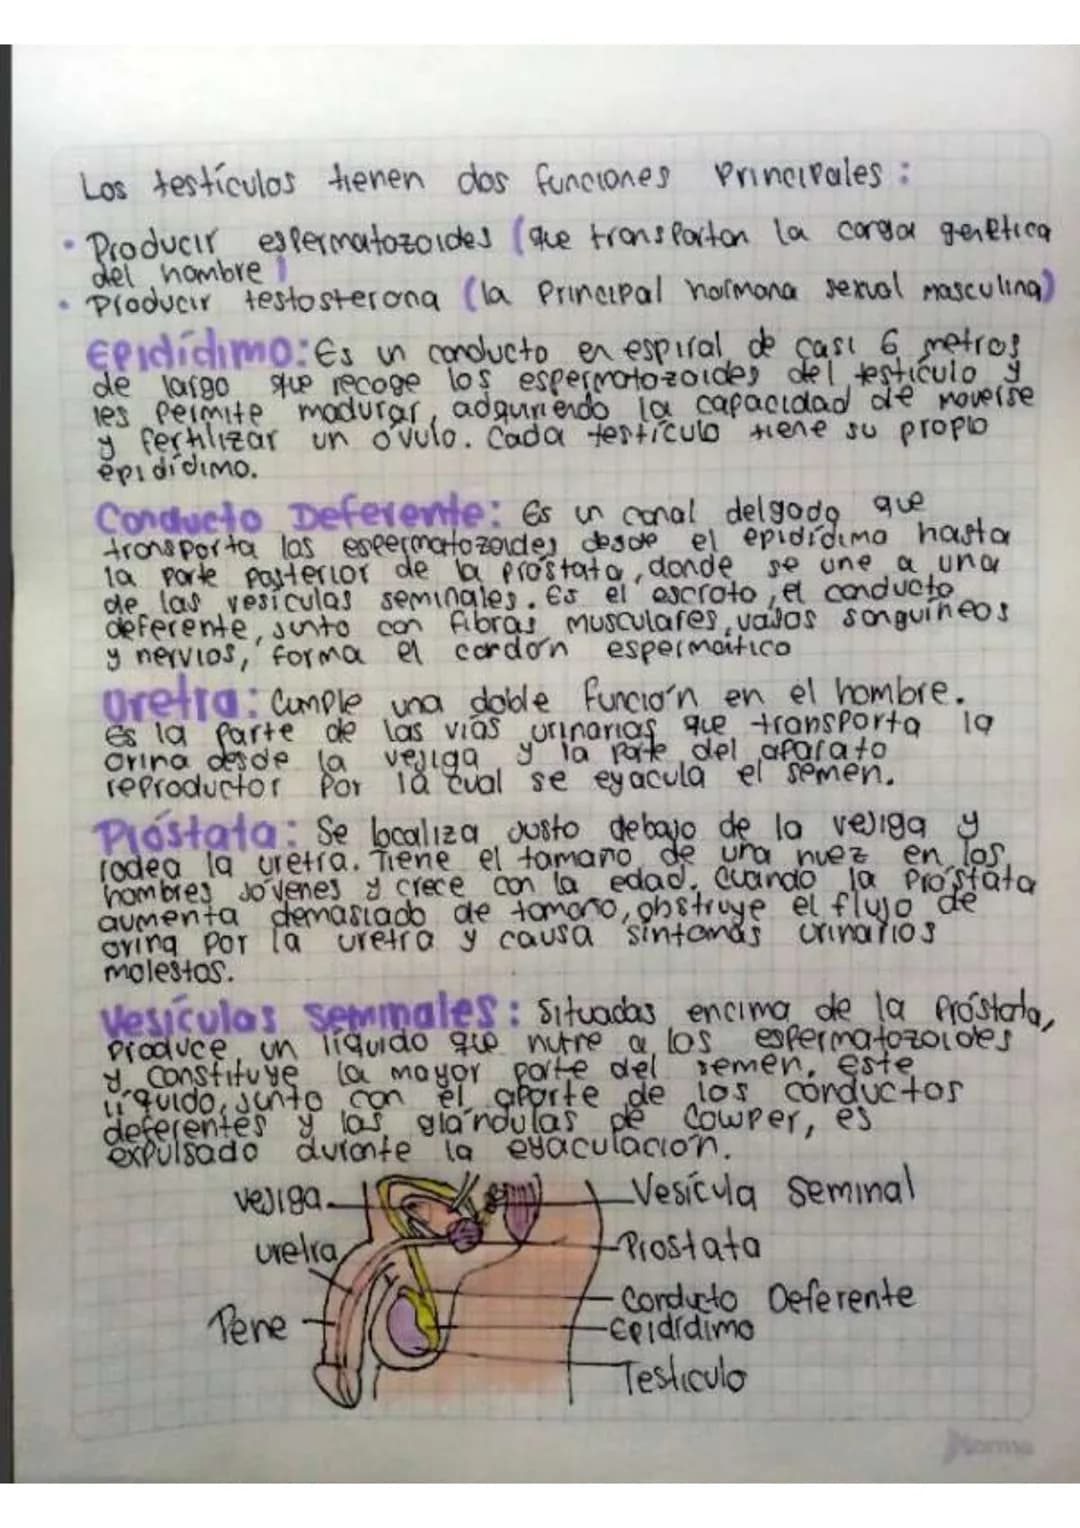 Los testículos tienen dos funciones Principales:
• Producir espermatozoides (que transportan la carga genética
del hombre)
• Producir testosterona (la Principal hormona sexual masculina)
Epidídimo: Es un conducto en espiral de casi 6 metros
de largo que recoge los espermatozoides del testículo y
les permite madurar, adquiriendo la capacidad de moverse
y fertilizar un óvulo. Cada testículo tiene su propio
epidídimo.
Conducto Deferente: Es un canal delgado que
transporta los espermatozoides desde el epidídimo hasta
la parte posterior de la próstata, donde se une a una
de las vesículas seminales. Es el escroto, el conducto
deferente, junto con fibras musculares, vasos sanguíneos
y nervios, forma el cordón espermático
Uretra: Cumple una doble función en el hombre.
Es la parte de las vías urinarias que transporta la
orina desde la vejiga y la parte del aparato
reproductor por la cual se eyacula el semen.
Próstata: Se localiza justo debajo de la vejiga y
rodea la uretra. Tiene el tamaño de una nuez en los
hombres jóvenes y crece con la edad. Cuando la Próstata
aumenta demasiado de tamaño, obstruye el flujo de
orina por la uretra y causa síntomas urinarios
molestos.
Vesículas Seminales: Situadas encima de la Próstata,
Produce un líquido que nutre a los espermatozoides
y constituye la mayor parte del semen. Este
líquido, junto con el aporte de los conductos
deferentes y las glándulas de Cowper, es
expulsado durante la eyaculación.
vejiga
Vesícula Seminal
uretra
Prostata
Conducto Deferente
Pene
Epidídimo
Testiculo
Norma